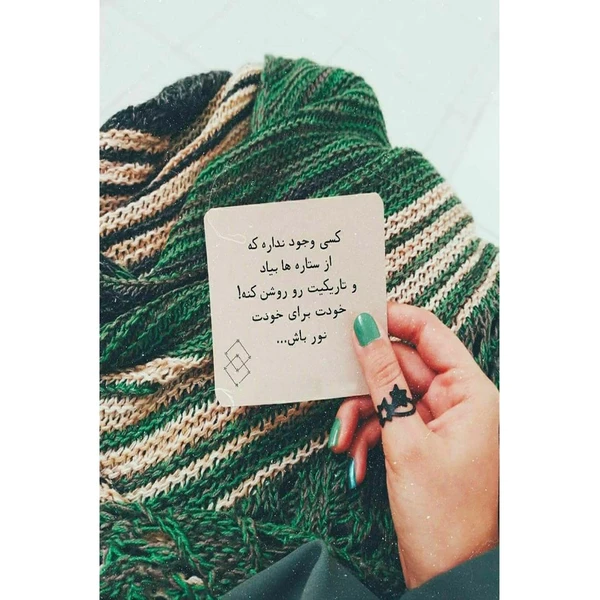 کسی وجود نداره که
از ستاره ها بیاد
و تاریکیت رو روشن کنه!
خودت برای خودت
نور باش...